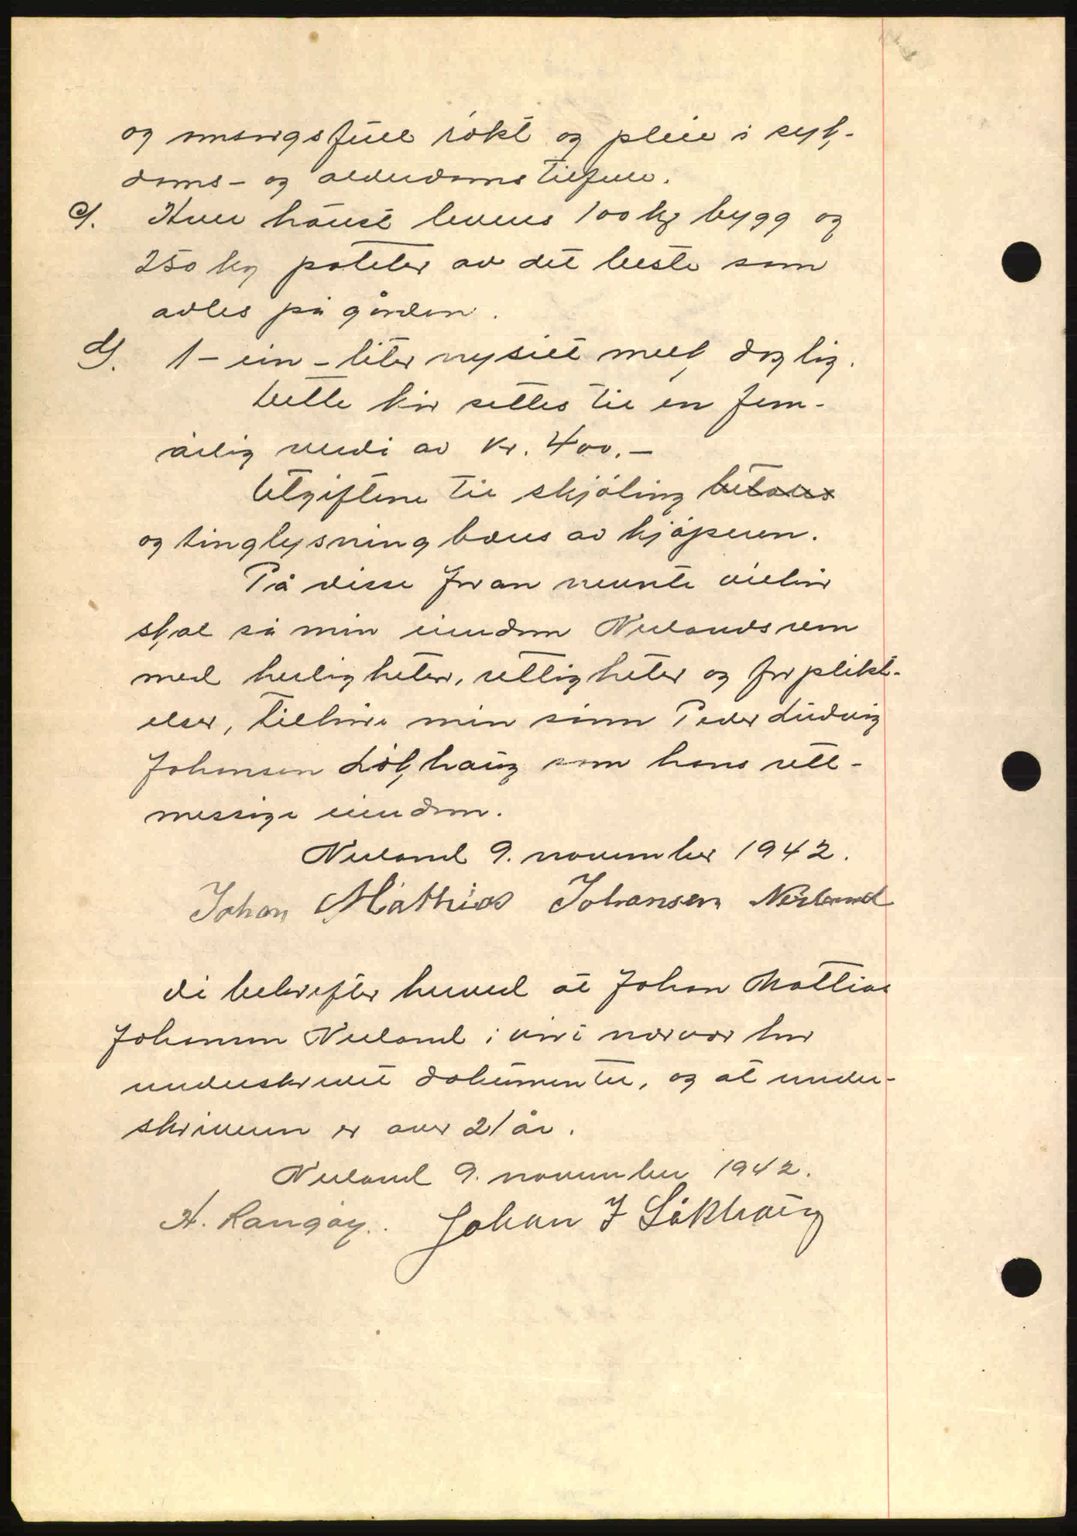 og omsorgsfull røkt og pleie i syk-
doms- og alderdomstilfelle.
c). Hver høust leveres 100 kg bygg og
250 kg poteter av det beste som
avles på gården.
d). 1 - ein - liter nysilt melk daglig.
Dette kår settes til en fem-
årlig verdi av kr. 400.-
Utgiftene til skjøting betales
og tinglysning bæres av kjøperen.
På disse foran nevnte vilkår
skal så min eiendom
med herligheter, rettigheter og forplikt-
elser, tilhøre min sønn Peder Ludvig
Johansen Løkhaug som hans rett-
messige eiendom.
Nerland 9. november 1942.
Johan Mathias Johansen Nerland
Vi bekrefter herved at Johan Mattias
Johansen Nerland i vårt nærvær har
underskrevet dokumentet, og at under-
skriveren er over 21 år.
Nerland 9. november 1942.
H. Rangøy. Johan J Løkhaug